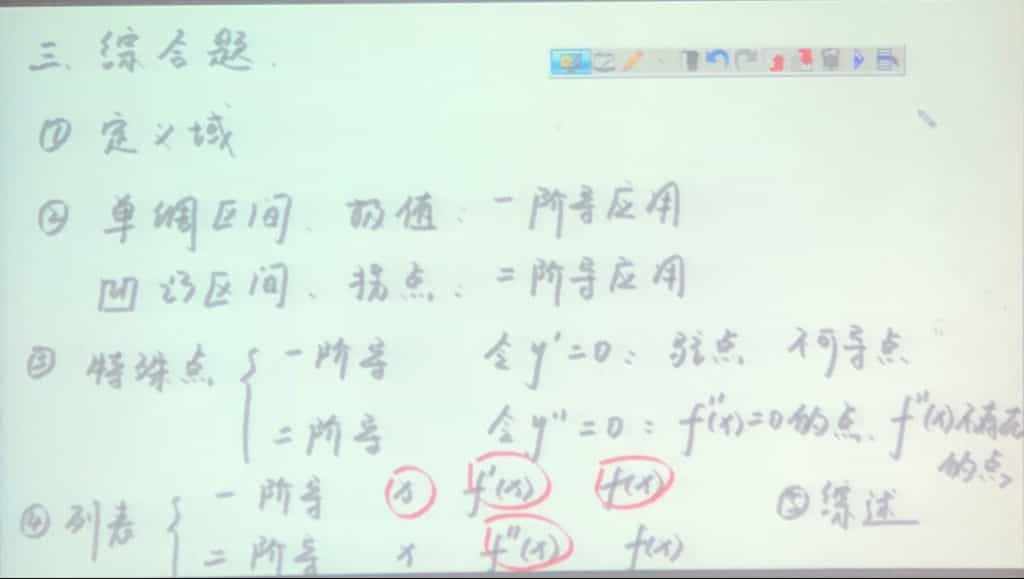 三、综合题.
① 定义域
② 单调区间、极值：一阶导应用
凹凸区间、拐点：二阶导应用
③ 特殊点 { 一阶导 令y'=0：驻点、不可导点
二阶导 令y''=0：f''(x)=0的点、f''(x)不存在的点
④ 列表 { 一阶导 x f'(x) f(x)
二阶导 x f''(x) f(x)
⑤ 综述